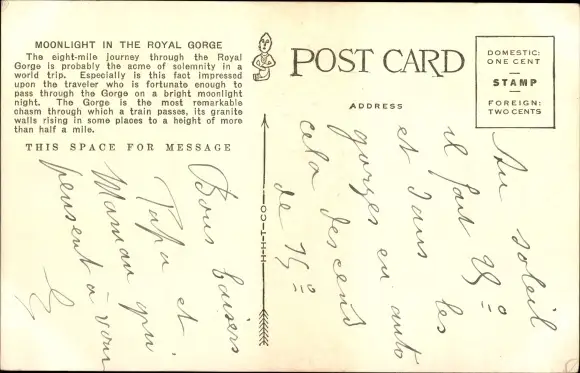 MOONLIGHT IN THE ROYAL GORGE
The eight-mile journey through the Royal
Gorge is probably the acme of solemnity in a
world trip. Especially is this fact impressed
upon the traveler who is fortunate enough to
pass through the Gorge on a bright moonlight
night. The Gorge is the most remarkable
chasm through which a train passes, its granite
walls rising in some places to a height of more
than half a mile.
THIS SPACE FOR MESSAGE
POST CARD
ADDRESS
DOMESTIC:
ONE CENT
STAMP
FOREIGN:
TWO CENTS
Au soleil
il fait
et dans les
gorges en auto
cela descend
de 15°
Bons baisers
Papa et
Maman qui
pensent à vous